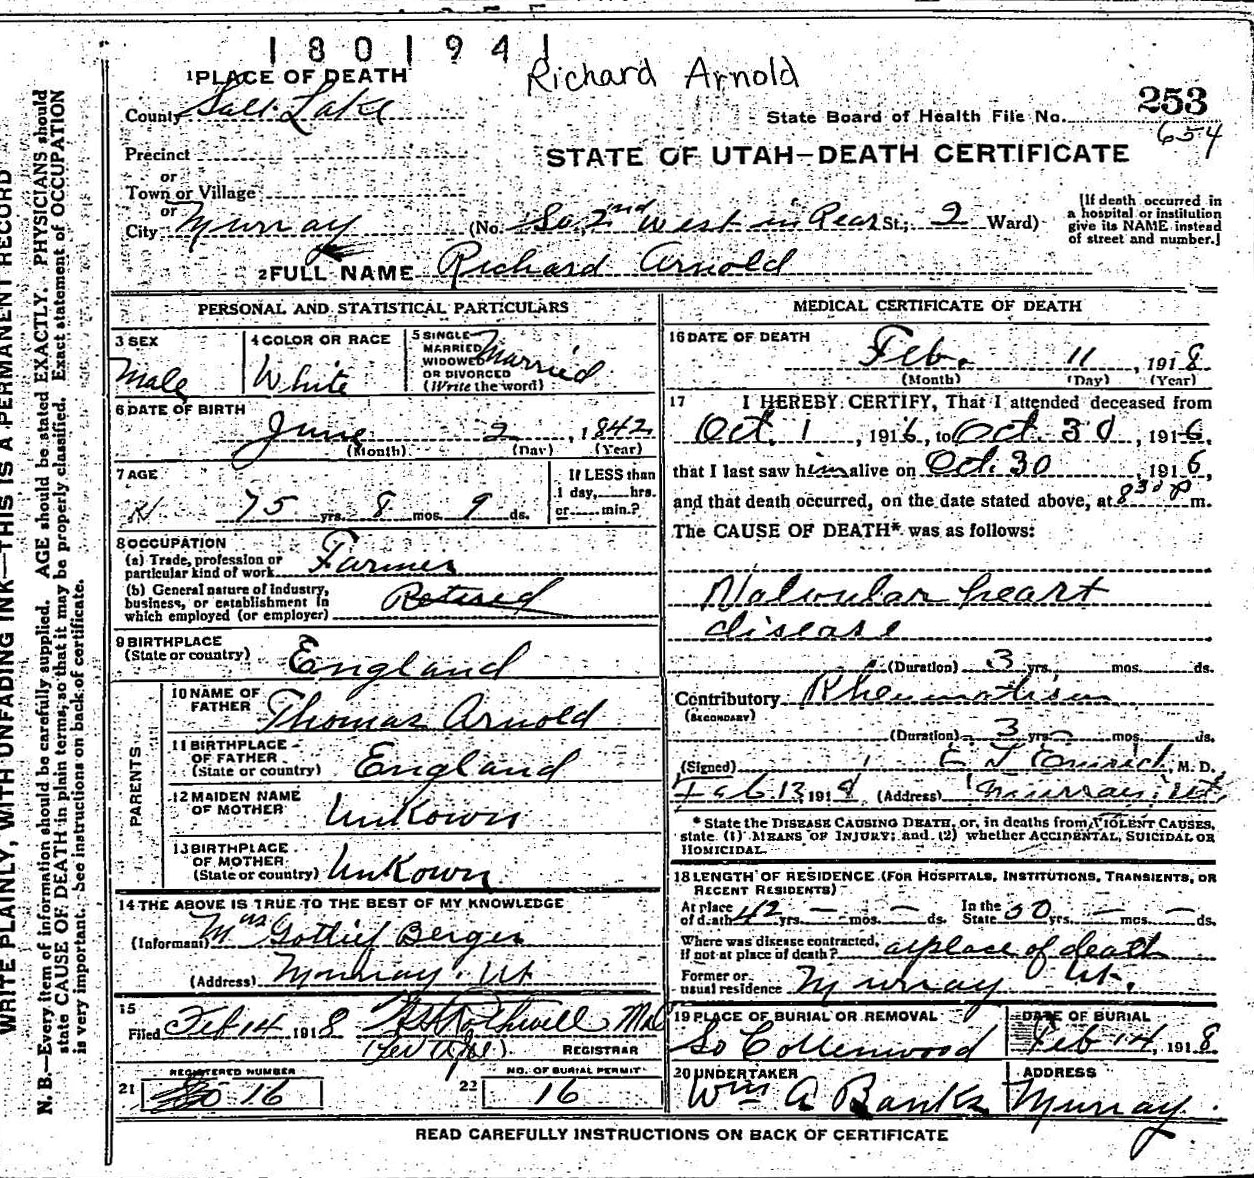 1801941
Richard Arnold
1 PLACE OF DEATH
County Salt Lake
State Board of Health File No. 253
654
Precinct
or
STATE OF UTAH—DEATH CERTIFICATE
Town or Village
or
City Murray (No. So. 2nd West in Rear St.; 2 Ward)
[If death occurred in a hospital or institution give its NAME instead of street and number.]
2 FULL NAME Richard Arnold
PERSONAL AND STATISTICAL PARTICULARS
3 SEX
Male
4 COLOR OR RACE
White
5 SINGLE
MARRIED
WIDOWED
OR DIVORCED
(Write the word)
Married
6 DATE OF BIRTH
June 2, 1842
(Month) (Day) (Year)
7 AGE
75 yrs. 8 mos. 9 ds.
If LESS than
1 day, hrs.
or min.?
8 OCCUPATION
(a) Trade, profession or
particular kind of work Farmer
(b) General nature of industry,
business, or establishment in
which employed (or employer) Retired
9 BIRTHPLACE
(State or country) England
PARENTS
10 NAME OF
FATHER Thomas Arnold
11 BIRTHPLACE
OF FATHER
(State or country) England
12 MAIDEN NAME
OF MOTHER UnKown
13 BIRTHPLACE
OF MOTHER
(State or country) UnKown
14 THE ABOVE IS TRUE TO THE BEST OF MY KNOWLEDGE
(Informant) Mrs Gotlief Berger
(Address) Murray. Ut
15
Filed Feb 14 1918 Rothwell MD
REGISTRAR
REGISTERED NUMBER
21 16
NO. OF BURIAL PERMIT
22 16
MEDICAL CERTIFICATE OF DEATH
16 DATE OF DEATH
Feb. 11, 1918
(Month) (Day) (Year)
17 I HEREBY CERTIFY, That I attended deceased from
Oct. 1, 1916, to Oct. 30, 1916,
that I last saw him alive on Oct. 30, 1916,
and that death occurred, on the date stated above, at 8 30 P m.
The CAUSE OF DEATH* was as follows:
Valvular heart
disease
(Duration) 3 yrs. mos. ds.
Contributory Rheumatism
(SECONDARY)
(Duration) 3 yrs. mos. ds.
(Signed) M. D.
Feb 13, 1918 (Address) Murray, Ut.
* State the DISEASE CAUSING DEATH, or, in deaths from VIOLENT CAUSES,
state (1) MEANS OF INJURY; and (2) whether ACCIDENTAL, SUICIDAL OR
HOMICIDAL.
18 LENGTH OF RESIDENCE (FOR HOSPITALS, INSTITUTIONS, TRANSIENTS, OR
RECENT RESIDENTS)
At place
of death 42 yrs. — mos. — ds. In the
State 50 yrs. — mos. — ds.
Where was disease contracted,
if not at place of death? at place of death
Former or
usual residence Murray Ut.
19 PLACE OF BURIAL OR REMOVAL
So Cottenwood
DATE OF BURIAL
Feb 14, 1918
20 UNDERTAKER
Wm A Banks
ADDRESS
Murray.
READ CAREFULLY INSTRUCTIONS ON BACK OF CERTIFICATE
WRITE PLAINLY, WITH UNFADING INK—THIS IS A PERMANENT RECORD
N. B.—Every item of information should be carefully supplied. AGE should be stated EXACTLY. PHYSICIANS should
state CAUSE OF DEATH in plain terms, so that it may be properly classified. Exact statement of OCCUPATION
is very important. See instructions on back of certificate.